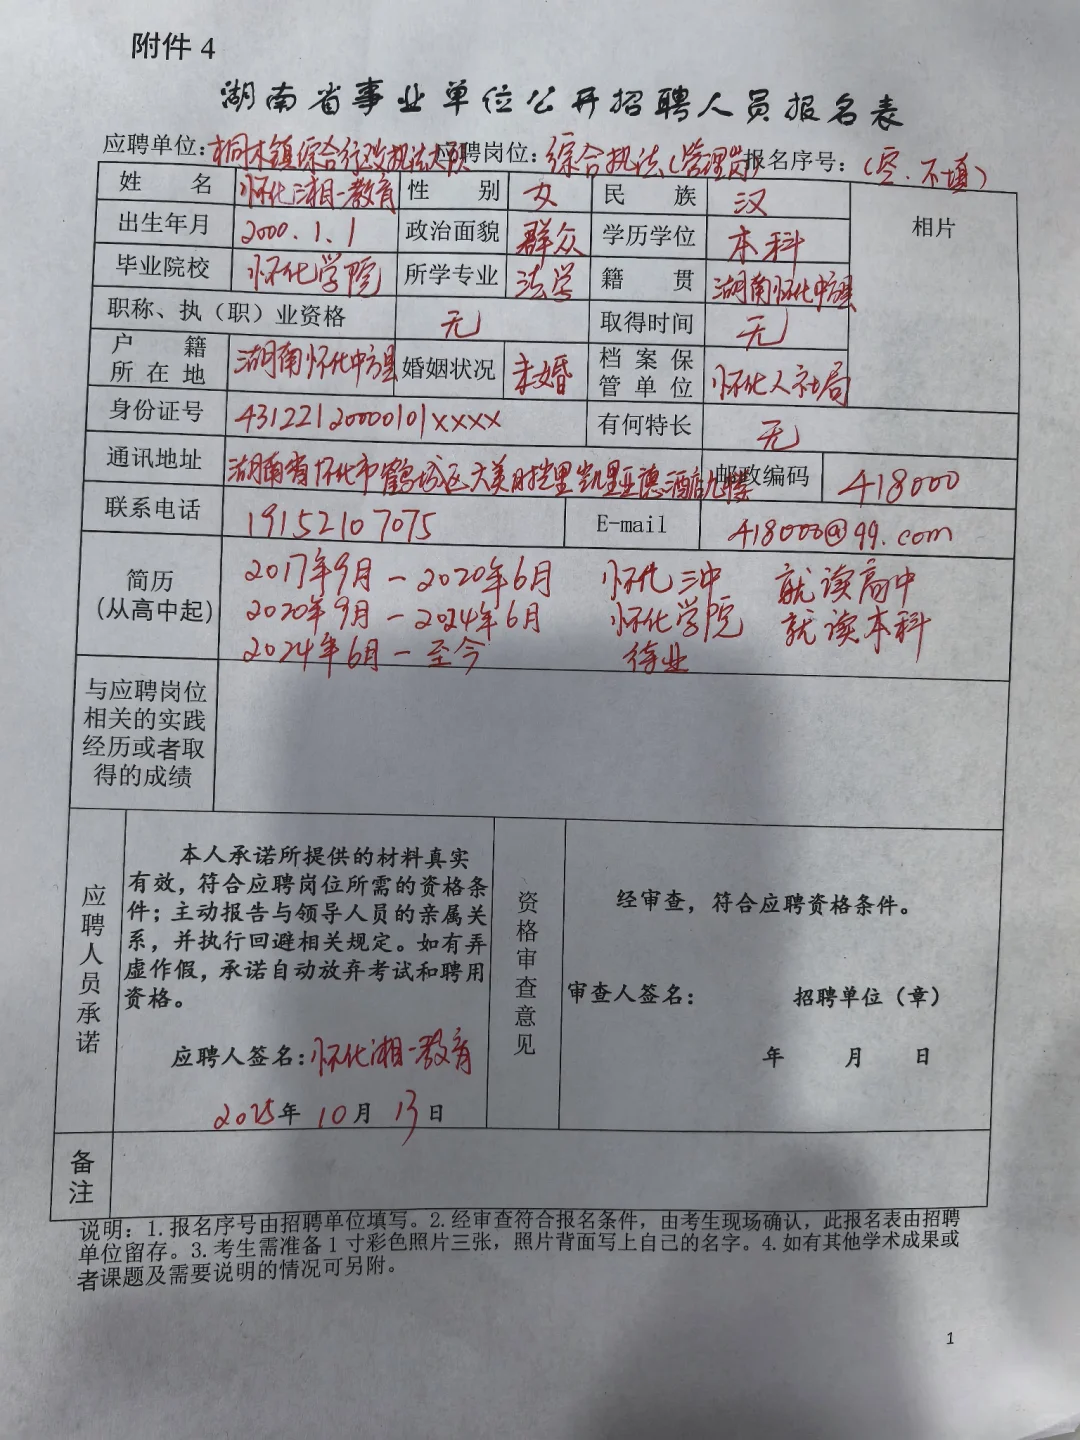 附件 4
湖南省事业单位公开招聘人员报名表
应聘单位：桐木镇综合行政执法大队 应聘岗位：综合执法（管理岗） 报名序号：（空、不填）
姓名 怀化湘一教育 性别 女 民族 汉 相片
出生年月 2000.1.1 政治面貌 群众 学历学位 本科
毕业院校 怀化学院 所学专业 法学 籍贯 湖南怀化中方县
职称、执（职）业资格 无 取得时间 无
户籍所在地 湖南怀化中方县 婚姻状况 未婚 档案保管单位 怀化人社局
身份证号 43122120000101xxxx 有何特长 无
通讯地址 湖南省怀化市鹤城区大美时裳里凯里亚德酒店九楼 邮政编码 418000
联系电话 19152107075 E-mail 418000@qq.com
简历
（从高中起）
2017年9月－2020年6月 怀化三中 就读高中
2020年9月－2024年6月 怀化学院 就读本科
2024年6月－至今 待业
与应聘岗位
相关的实践
经历或者取
得的成绩
应聘人员承诺
本人承诺所提供的材料真实
有效，符合应聘岗位所需的资格条
件；主动报告与领导人员的亲属关
系，并执行回避相关规定。如有弄
虚作假，承诺自动放弃考试和聘用
资格。
应聘人签名：怀化湘一教育
2025年 10月 13日
资格审查意见
经审查，符合应聘资格条件。
审查人签名： 招聘单位（章）
年 月 日
备注
说明：1.报名序号由招聘单位填写。2.经审查符合报名条件，由考生现场确认，此报名表由招聘
单位留存。3.考生需准备1寸彩色照片三张，照片背面写上自己的名字。4.如有其他学术成果或
者课题及需要说明的情况可另附。
1